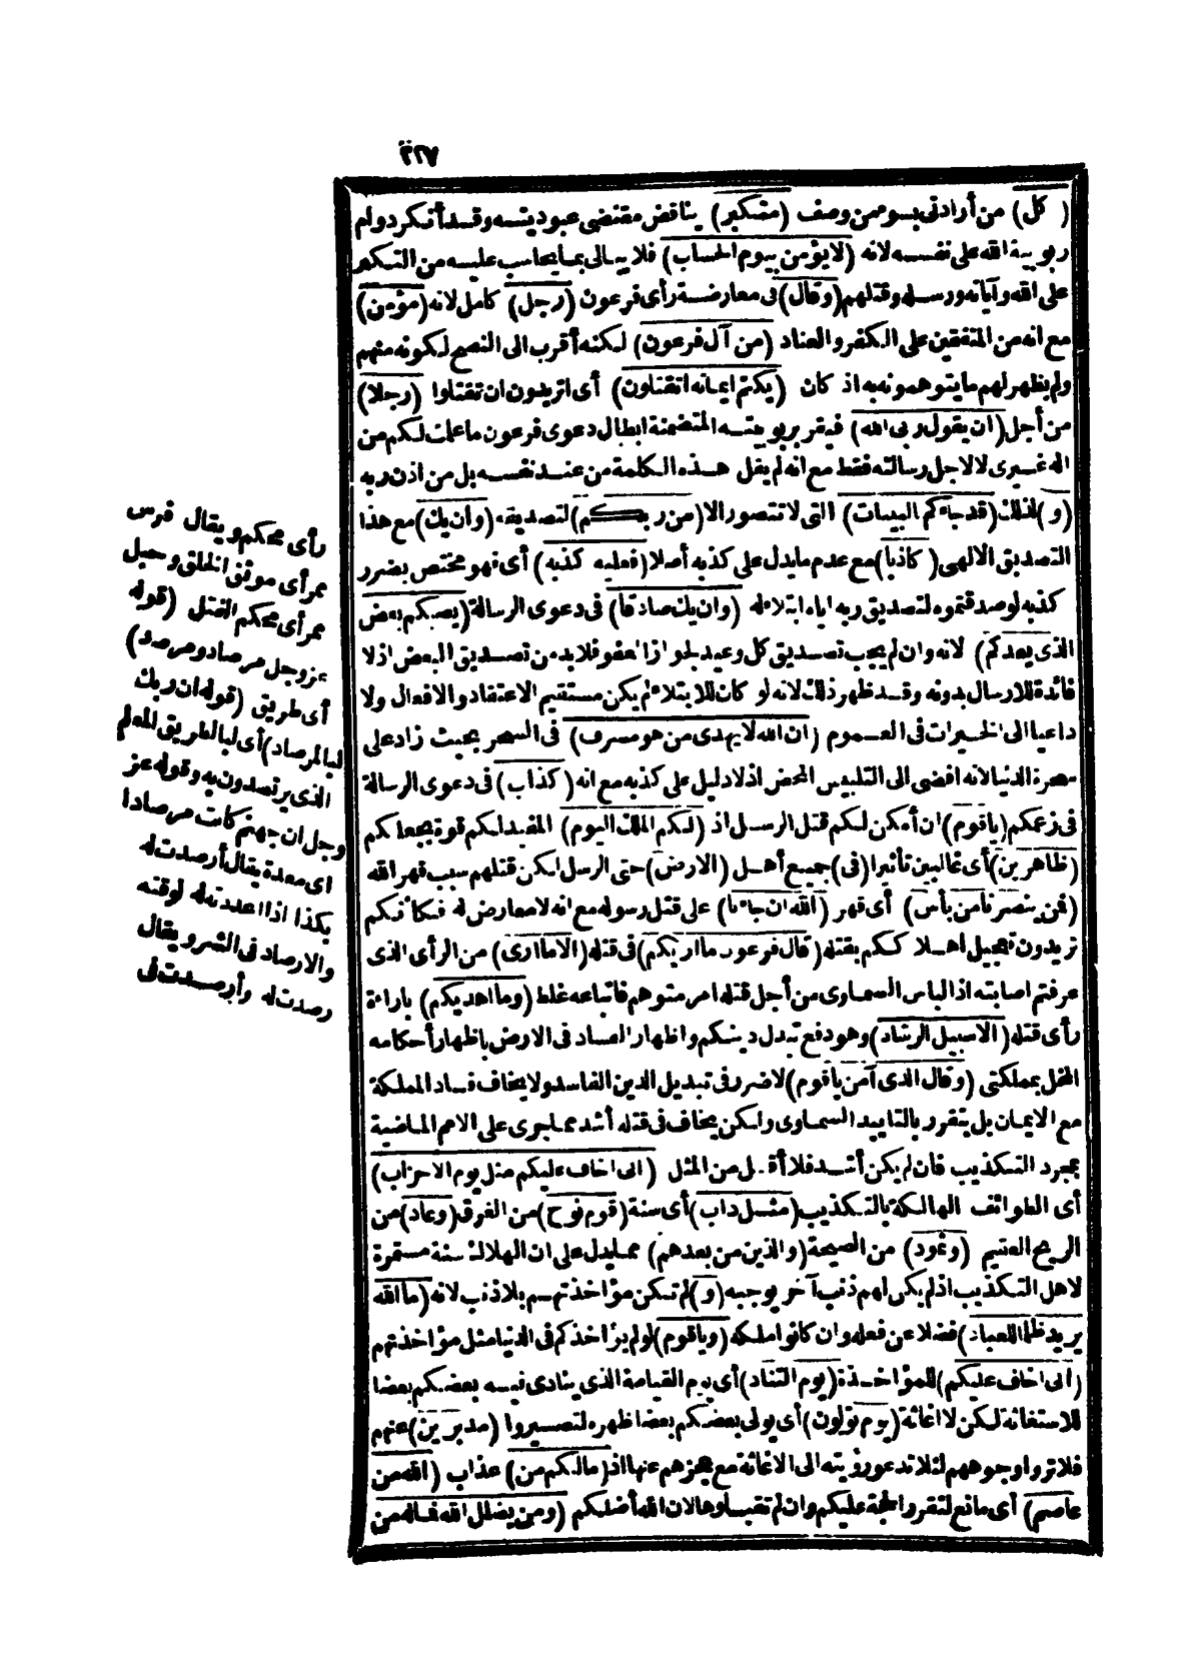 ٣٢٧
( كل) من أرادنى بسوء ممن وصف (متكبر) يناقض مقتضى عبوديته وقد أنكر دوام
ربوبية الله على نفسه لانه (لا يؤمن بيوم الحساب) فلا يبالى بما يحاسب عليه من التكبر
على الله وآياته ورسله وقتلهم (وقال) فى معارضة رأى فرعون (رجل) كامل لانه (مؤمن)
مع انه من المتفقين على الكفر والعناد (من آل فرعون) لكنه أقرب الى النصح لكونه منهم
ولم يظهر لهم ما يتوهمونه به اذ كان (يكتم ايمانه اتقتلون) أى اتريدون ان تقتلوا (رجلا)
من أجل (ان يقول ربى الله) فيقر بربوبيته المتضمنة ابطال دعوى فرعون ما علمت لكم من
اله غيرى لا لاجل رسالته فقط مع انه لم يقل هذه الكلمة من عند نفسه بل من اذن ربه
(و) لذلك (قد جاءكم البينات) التى لا تتصور الا (من ربكم) لتصديقه (وان يك) مع هذا
التصديق الالهى (كاذبا) مع عدم ما يدل على كذبه أصلا (فعليه كذبه) أى فهو مختص بضرر
كذبه لو صدقتموه لتصديق ربه اياه ابتلاء له (وان يك صادقا) فى دعوى الرسالة (يصبكم بعض
الذى يعدكم) لانه وان لم يجب تصديق كل وعيد لجواز العفو فلا بد من تصديق البعض اذ لا
فائدة للارسال بدونه وقد ظهر ذلك لانه لو كان للابتلاء لم يكن مستقيم الاعتقاد والافعال ولا
داعيا الى الخيرات فى العموم (ان الله لا يهدى من هو مسرف) فى السحر بحيث زاد على
سحرة الدنيا لانه افضى الى التلبيس المحض اذ لا دليل على كذبه مع انه (كذاب) فى دعوى الرسالة
فى زعمكم (يا قوم) ان أمكن لكم قتل الرسل اذ (لكم الملك اليوم) المفيد لكم قوة يجعلكم
(ظاهرين) أى غالبين تأثيرا (فى) جميع أهل (الارض) حتى الرسل لكن قتلهم سبب قهر الله
(فمن ينصرنا من بأس) أى قهر (الله ان جاءنا) على قتل رسوله مع انه لا معارض له فكأنكم
تريدون تعجيل اهلاككم بقتله (قال فرعون ما اريكم) فى قتله (الا ما ارى) من الرأى الذى
عرفتم اصابته اذ الباس السماوى من أجل قتله امر متوهم فاتباعه غلط (وما اهديكم) باراءة
رأى قتله (الا سبيل الرشاد) وهو دفع تبدل دينكم واظهار الفساد فى الارض باظهار أحكامه
المخل بمملكتى (وقال الذى آمن يا قوم) لا ضرر فى تبديل الدين الفاسد ولا يخاف فساد المملكة
مع الايمان بل يتقرر بالتاييد السماوى ولكن يخاف فى قتله أشد مما جرى على الامم الماضية
بمجرد التكذيب فان لم يكن أشد فلا أقل من المثل (انى اخاف عليكم مثل يوم الاحزاب)
أى الطوائف الهالكة بالتكذيب (مثل داب) أى سنة (قوم نوح) من الغرق (وعاد) من
الريح العقيم (وثمود) من الصيحة (والذين من بعدهم) مما يدل على ان الهلاك سنة مستمرة
لاهل التكذيب اذ لم يكن لهم ذنب آخر يوجبه (و) لم تكن مؤاخذتهم بلا ذنب لانه (ما الله
يريد ظلما للعباد) فضلا عن فعله وان كانوا ملكه (ويا قوم) لو لم يؤاخذكم فى الدنيا مثل مؤاخذتهم
(انى اخاف عليكم) للمؤاخذة (يوم التناد) أى يوم القيامة الذى ينادى فيه بعضكم بعضا
للاستغاثة لكن لا اغاثة (يوم تولون) أى يولى بعضكم بعضا ظهره لتصيروا (مدبرين) عنهم
فلا تروا وجوههم لئلا تدعو رؤيته الى الاغاثة مع عجزهم عنها اذ (ما لكم من) عذاب (الله من
عاصم) أى مانع لتقروا الحجة عليكم وان لم تقبلوها لان الله أضلكم (ومن يضلل الله فماله من
رأى محكم ويقال فرس
ممر أى موثق الخلق وحبل
ممر أى محكم الفتل (قوله
عز وجل مرصاد ومرصد)
أى طريق (قوله ان ربك
لبالمرصاد) أى لبالطريق المعلم
الذى يرتصدون به وقوله عز
وجل ان جهنم كانت مرصادا
اى معدة يقال أرصدت له
بكذا اذا اعددته له لوقته
والارصاد فى الشر ويقال
رصدت له وأرصدت فى